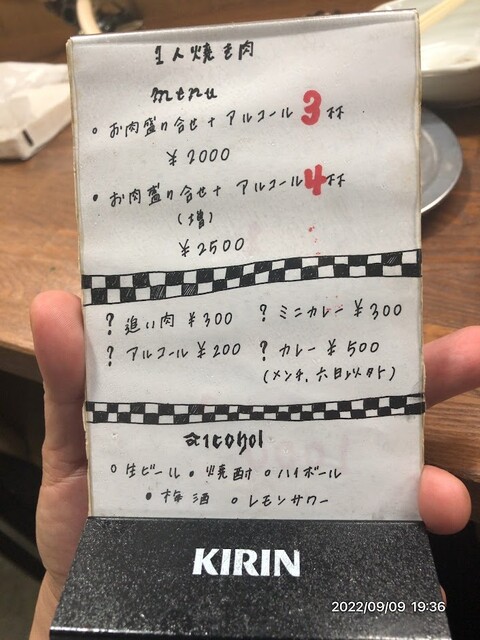 1人焼き肉
menu
• お肉盛り合せ + アルコール 3杯
¥2000
• お肉盛り合せ + アルコール 4杯
(増)
¥2500
? 追い肉 ¥300 ? ミニカレー ¥300
? アルコール ¥200 ? カレー ¥500
(メンチ,
alcohol
○ 生ビール • 焼酎 ○ ハイボール
• 梅酒 ○ レモンサワー
KIRIN
2022/09/09 19:36